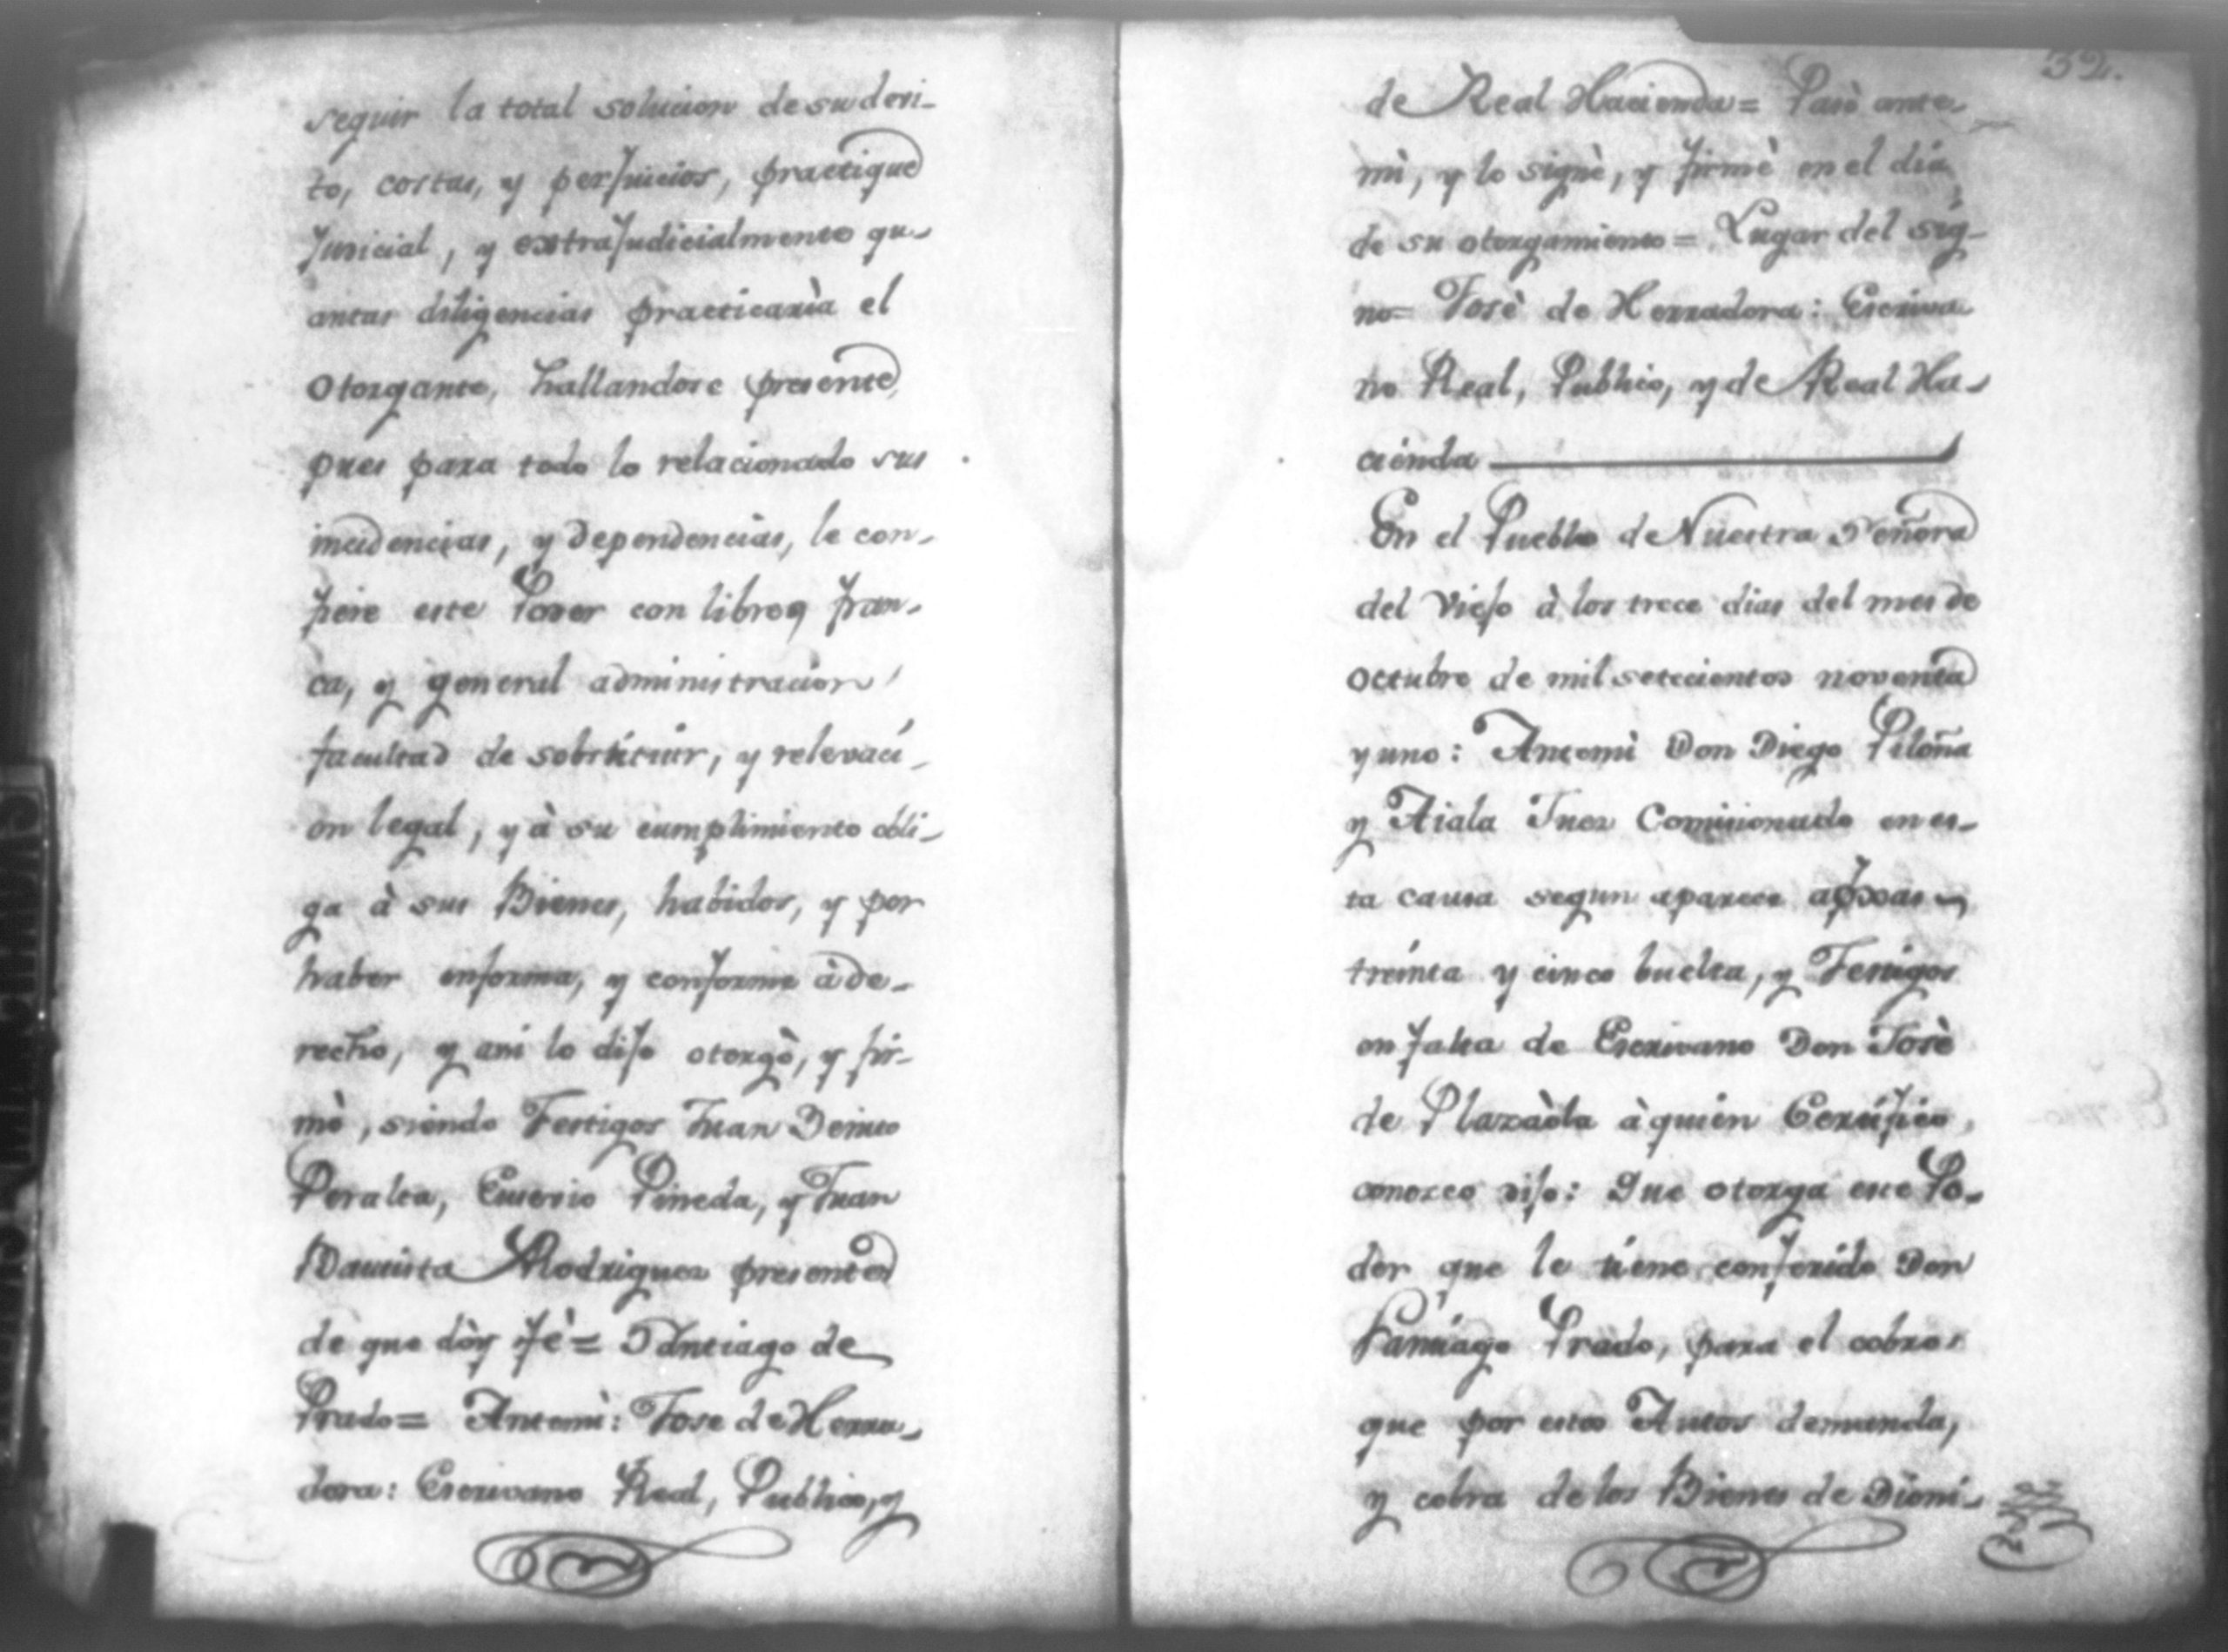 seguir la total solucion de su deri-
to, costas, y perjuicios, practique
Juricial, y extraJudicialmente qu-
antas diligencias practicaria el
Otorgante, hallandose presente,
pues para todo lo relacionado sus
incidencias, y dependencias, le con-
fiere este Poder con libre, y fran-
ca, y general administracion
facultad de sobstituir, y relevaci-
on legal, y à su cumplimiento obli-
ga à sus Bienes, habidos, y por
haber enforma, y conforme à de-
recho, y asi lo dijo otorgò, y fir-
mò, siendo Testigos Juan Benito
Peralta, Eusevio Pineda, y Juan
Bautista Rodriguez presentes
de que dòy fè = Santiago de
Prado = Antemì: Jose de Herra-
dora: Escrivano Real, Publico, y
32.
de Real Hacienda = Pasò ante
mì, y lo signè, y firmè en el dia
de su otorgamiento = Lugar del sig-
no = Josè de Herradora: Escriva
no Real, Publico, y de Real Ha-
cienda
En el Pueblo de Nuestra Señora
del Viejo à los trece dias del mes de
Octubre de mil setecientos noventa
y uno: Antemì Don Diego Piloña
y Aiala Juez Comicionado en es-
ta causa segun aparece afoxas
treinta y cinco buelta, y Testigos
en falta de Escrivano Don Josè
de Plazàola à quien Certifico,
conozco dijo: Que otorga este Po-
der que le tiene conferido Don
Santiago Prado, para el cobro
que por estos Autos demanda,
y cobra de los Bienes de Dioni-